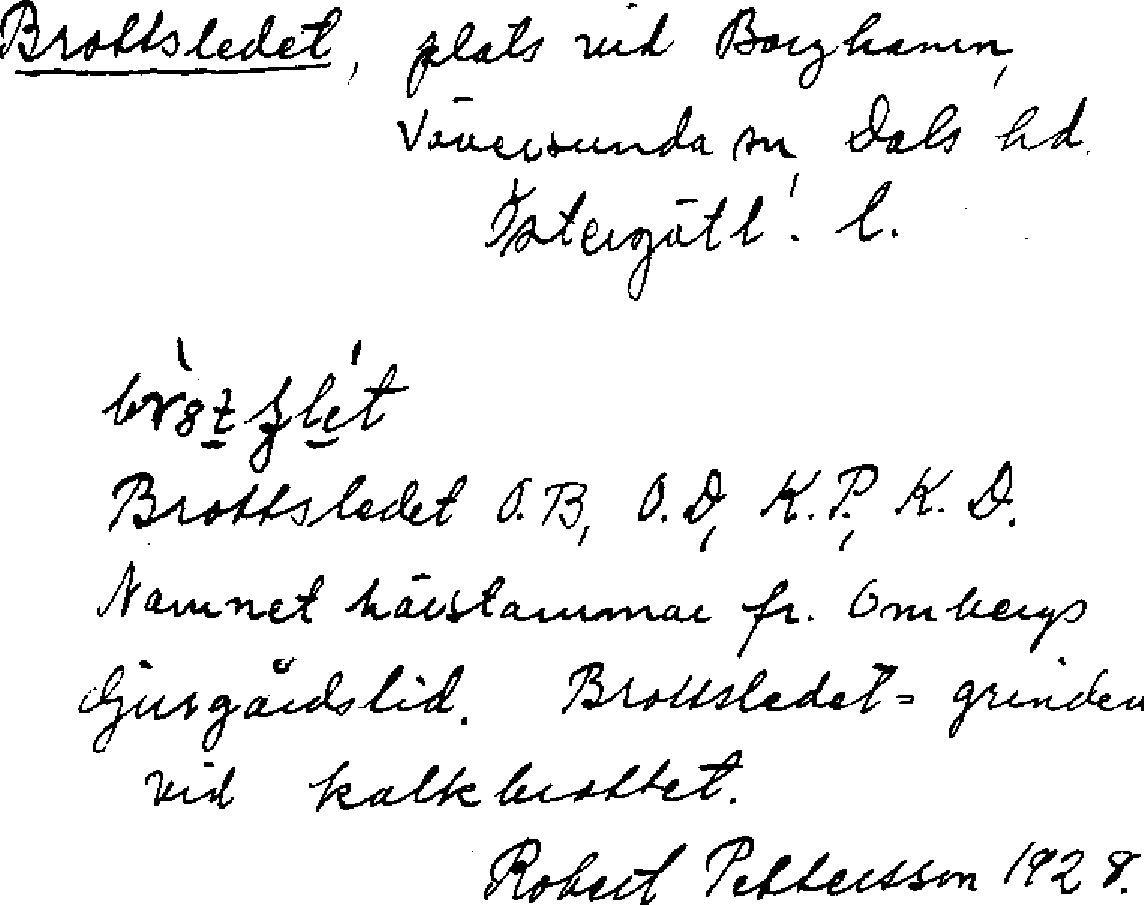 Brottsledet, plats vid Borghamn,
Väversunda sn, Dals hd.
Östergötl. l.
Brottsledet O.B, O.D, K.P, K.D.
Namnet härstammar fr. Ombergs
djurgårdstid. Brottsledet = grinden
vid kalkbrottet.
Robert Pettersson 1928.